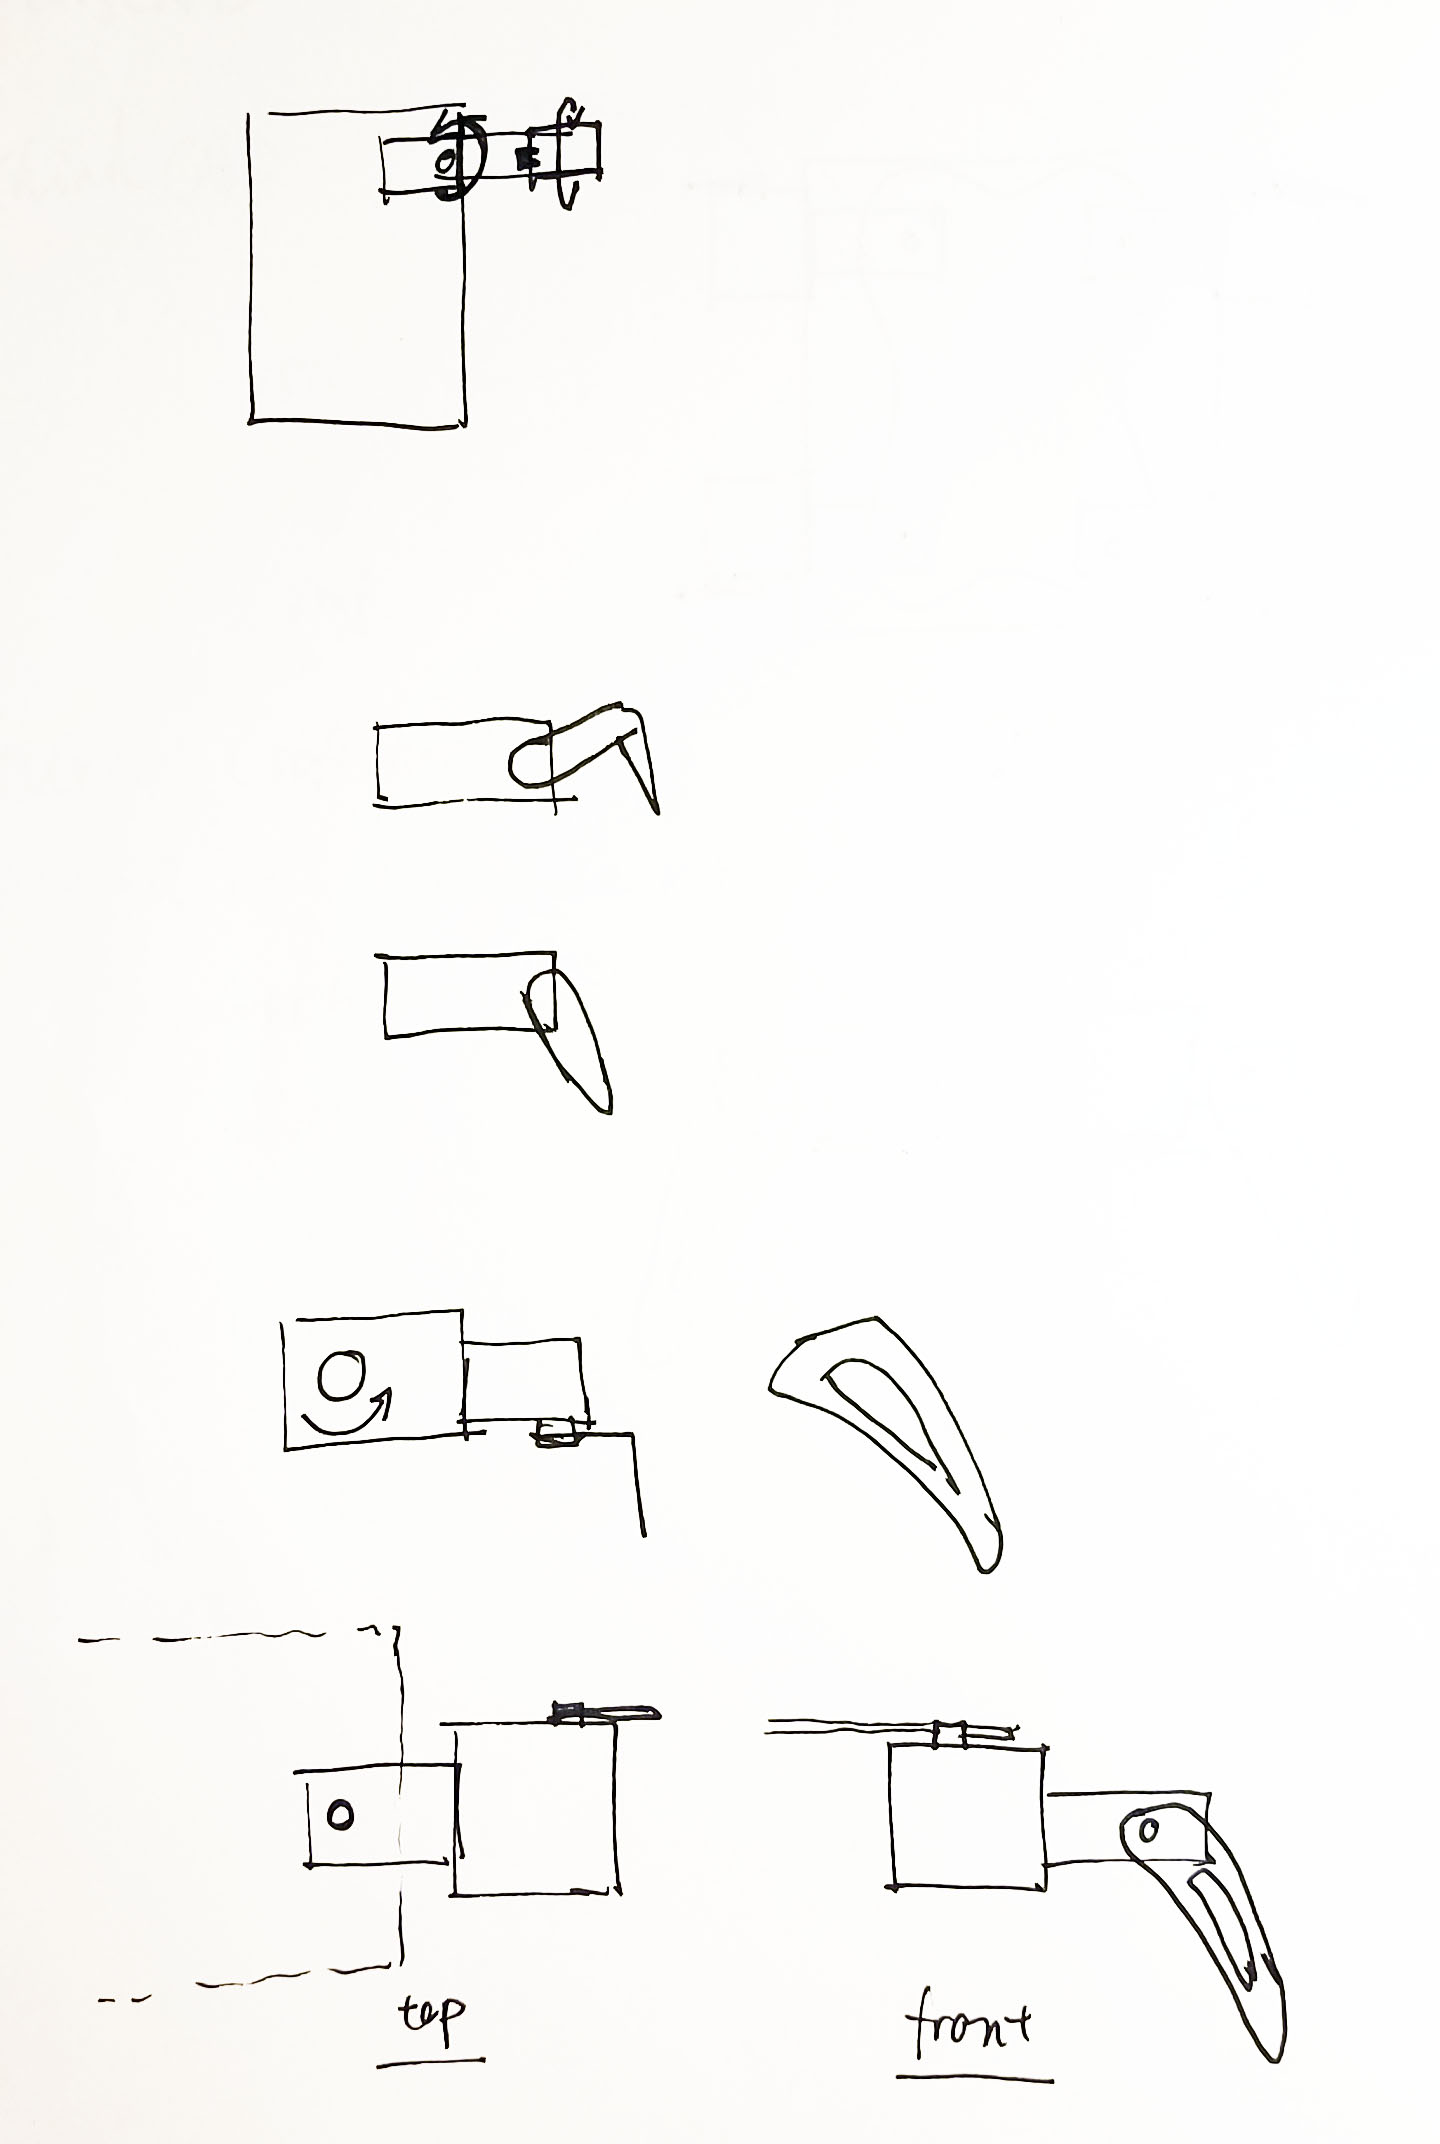 top
front